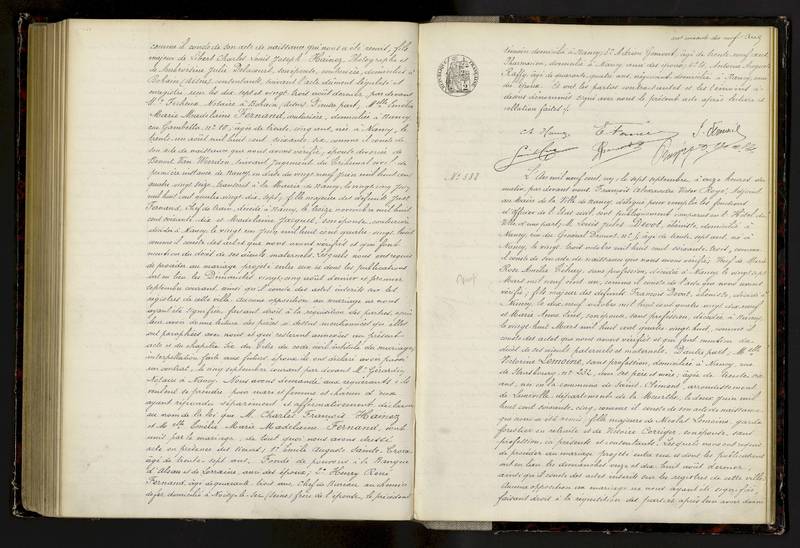 comme il conste de son acte de naissance qui nous a été remis, fils
majeur de Albert Charles Louis Joseph Hainez, Photographe et
de Ambroisine Julie Delacourt, son épouse, couturière, domiciliés à
Bohain (Aisne), consentants, suivant l'acte dûment légalisé et
enregistré, reçu les dix sept et vingt trois août dernier, par devant
Me Notaire à Bohain (Aisne) D'autre part, Mlle Emélie
Marie Madeleine Fernand, couturière, domiciliée à Nancy
rue Gambetta, No 18, âgée de trente cinq ans, née à Nancy, le
trente un août mil huit cent soixante six, comme il conste de
son acte de naissance que nous avons vérifié, épouse divorcée de
suivant jugement du Tribunal civil de
première instance de Nancy en date du vingt neuf juin mil huit cent
quatre vingt seize, transcrit à la Mairie de Nancy, le vingt cinq juin
mil huit cent quatre vingt dix sept; fille majeure des défunts Just
Fernand, chef de train, décédé à Nancy, le treize novembre mil huit
cent soixante dix et Madeleine Jacquel, son épouse, couturière
décédée à Nancy le vingt cinq juin mil huit cent quatre vingt trois
comme il conste des actes que nous avons vérifiés et qui font
mention du décès de ses aïeuls maternels. Lesquels nous ont requis
de procéder au mariage projeté entre eux et dont les publications
ont eu lieu les Dimanches vingt cinq août dernier et premier
septembre courant, ainsi qu'il conste des actes inscrits sur les
registres de cette ville. Aucune opposition au mariage ne nous
ayant été signifiée, faisant droit à la réquisition des parties, après
leur avoir donné lecture des pièces ci dessus mentionnées qu'elles
ont paraphées avec nous et qui resteront annexées au présent
acte et du chapitre six du titre du code civil intitulé du mariage,
interpellation faite aux futurs époux, ils ont déclaré avoir passé
un contrat, le cinq septembre courant par devant Me Girardin,
Notaire à Nancy. Nous avons demandé aux requérants s'ils
veulent se prendre pour mari et femme et chacun d'eux
ayant répondu séparément et affirmativement déclarons
au nom de la loi que M. Charles François Hainez
et Mlle Emélie Marie Madeleine Fernand, sont
unis par le mariage, de tout quoi nous avons dressé
acte en présence des Sieurs: 1° Emile Auguste Sainte-Croix
âgé de trente sept ans, Fondé de pouvoirs à la Banque
d'Alsace et de Lorraine, ami des époux; 2° Henry René
Fernand, âgé de quarante trois ans, Chef de Bureau au chemin
de fer, domicilié à Noisy-le-Sec (Seine) frère de l'épouse, le précédent
témoin domicilié à Nancy; 3° Adrien Gimont, âgé de trente neuf ans
Pharmacien, domicilié à Nancy ami des époux; 4° Antoine Auguste
Raffy, âgé de quarante quatre ans, négociant, domicilié à Nancy, ami
de l'époux. Et ont les parties contractantes et les témoins ci
dessus dénommés signé avec nous le présent acte après lecture et
collation faites.
No 588
L'An mil neuf cent un, le sept septembre, à onze heures du
matin, par devant nous François Alexandre Victor Royé, Adjoint
au Maire de la Ville de Nancy, délégué pour remplir les fonctions
d'officier de l'Etat civil, sont publiquement comparus en l'Hôtel de
Ville d'une part, M. Louis Jules Divot, ébéniste, domicilié à
Nancy, rue du Général Drouot, No 5, âgé de trente sept ans, né à
Nancy, le vingt trois octobre mil huit cent soixante trois, comme
il conste de son acte de naissance que nous avons vérifié; Veuf de Marie
Rose Amélie sans profession, décédée à Nancy le vingt sept
Mars mil neuf cent un, comme il conste de l'acte que nous avons
vérifié; fils majeur des défunts François Divot, ébéniste, décédé à
Nancy, le dix neuf octobre mil huit cent quatre vingt dix neuf
et Marie Anne son épouse, sans profession, décédée à Nancy,
le vingt huit Mars mil huit cent quatre vingt huit, comme il
conste des actes que nous avons vérifiés et qui font mention du
décès de ses aïeuls paternels et maternels. D'autre part, Mlle
Victorine Lemoine, sans profession, domiciliée à Nancy, rue
de Strasbourg, No 232, avec ses père et mère, âgée de trente six
ans, née en la commune de Saint-Clément, arrondissement
de Lunéville, département de la Meurthe, le deux juin mil
huit cent soixante cinq, comme il conste de son acte de naissance
qui nous a été remis; fille majeure de Nicolas Lemoine, garde
forestier en retraite et de Victoire son épouse, sans
profession, ici présents et consentants. Lesquels nous ont requis
de procéder au mariage projeté entre eux et dont les publications
ont eu lieu les dimanches onze et dix huit août dernier,
ainsi qu'il conste des actes inscrits sur les registres de cette ville.
Aucune opposition au mariage ne nous ayant été signifiée,
faisant droit à la réquisition des parties, après leur avoir donné